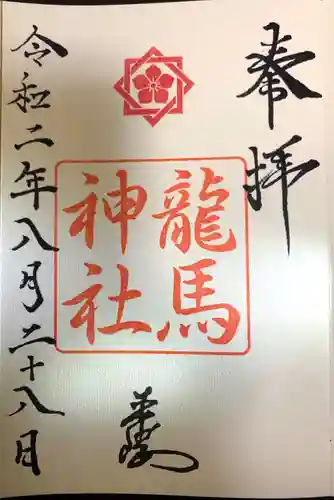 奉拝
龍馬
神社
令和二年八月二十八日